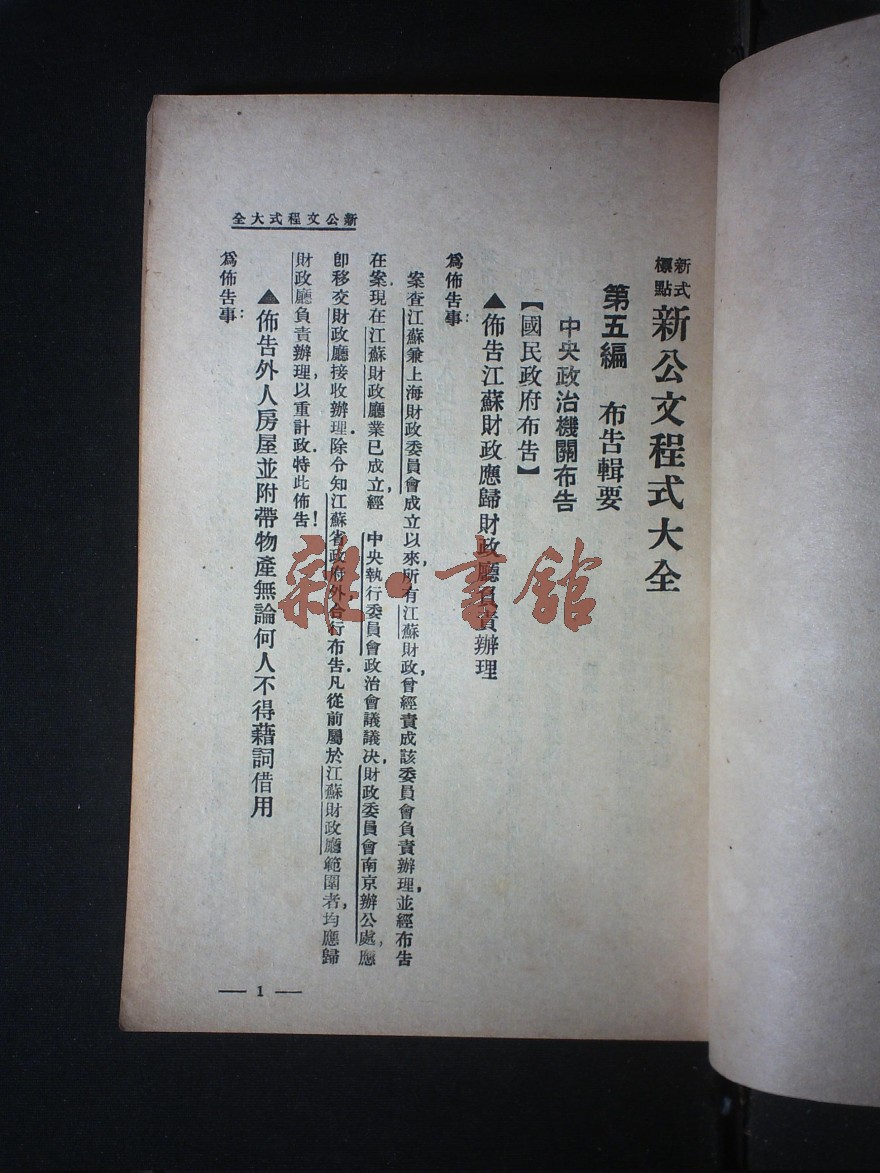 新式標點 新公文程式大全
第五編 布告輯要
中央政治機關布告
【國民政府布告】
▲佈告江蘇財政應歸財政廳負責辦理
爲佈告事：
案查江蘇兼上海財政委員會成立以來，所有江蘇財政，曾經責成該委員會負責辦理，並經布告
在案．現在江蘇財政廳業已成立，經 中央執行委員會政治會議議决，財政委員會南京辦公處，應
卽移交財政廳接收辦理．除令知江蘇省政府外，合行布告．凡從前屬於江蘇財政廳範圍者，均應歸
財政廳負責辦理，以重計政．特此佈告！
▲佈告外人房屋並附帶物產無論何人不得藉詞借用
爲佈告事：
新公文程式大全
— 1 —
雜·書館